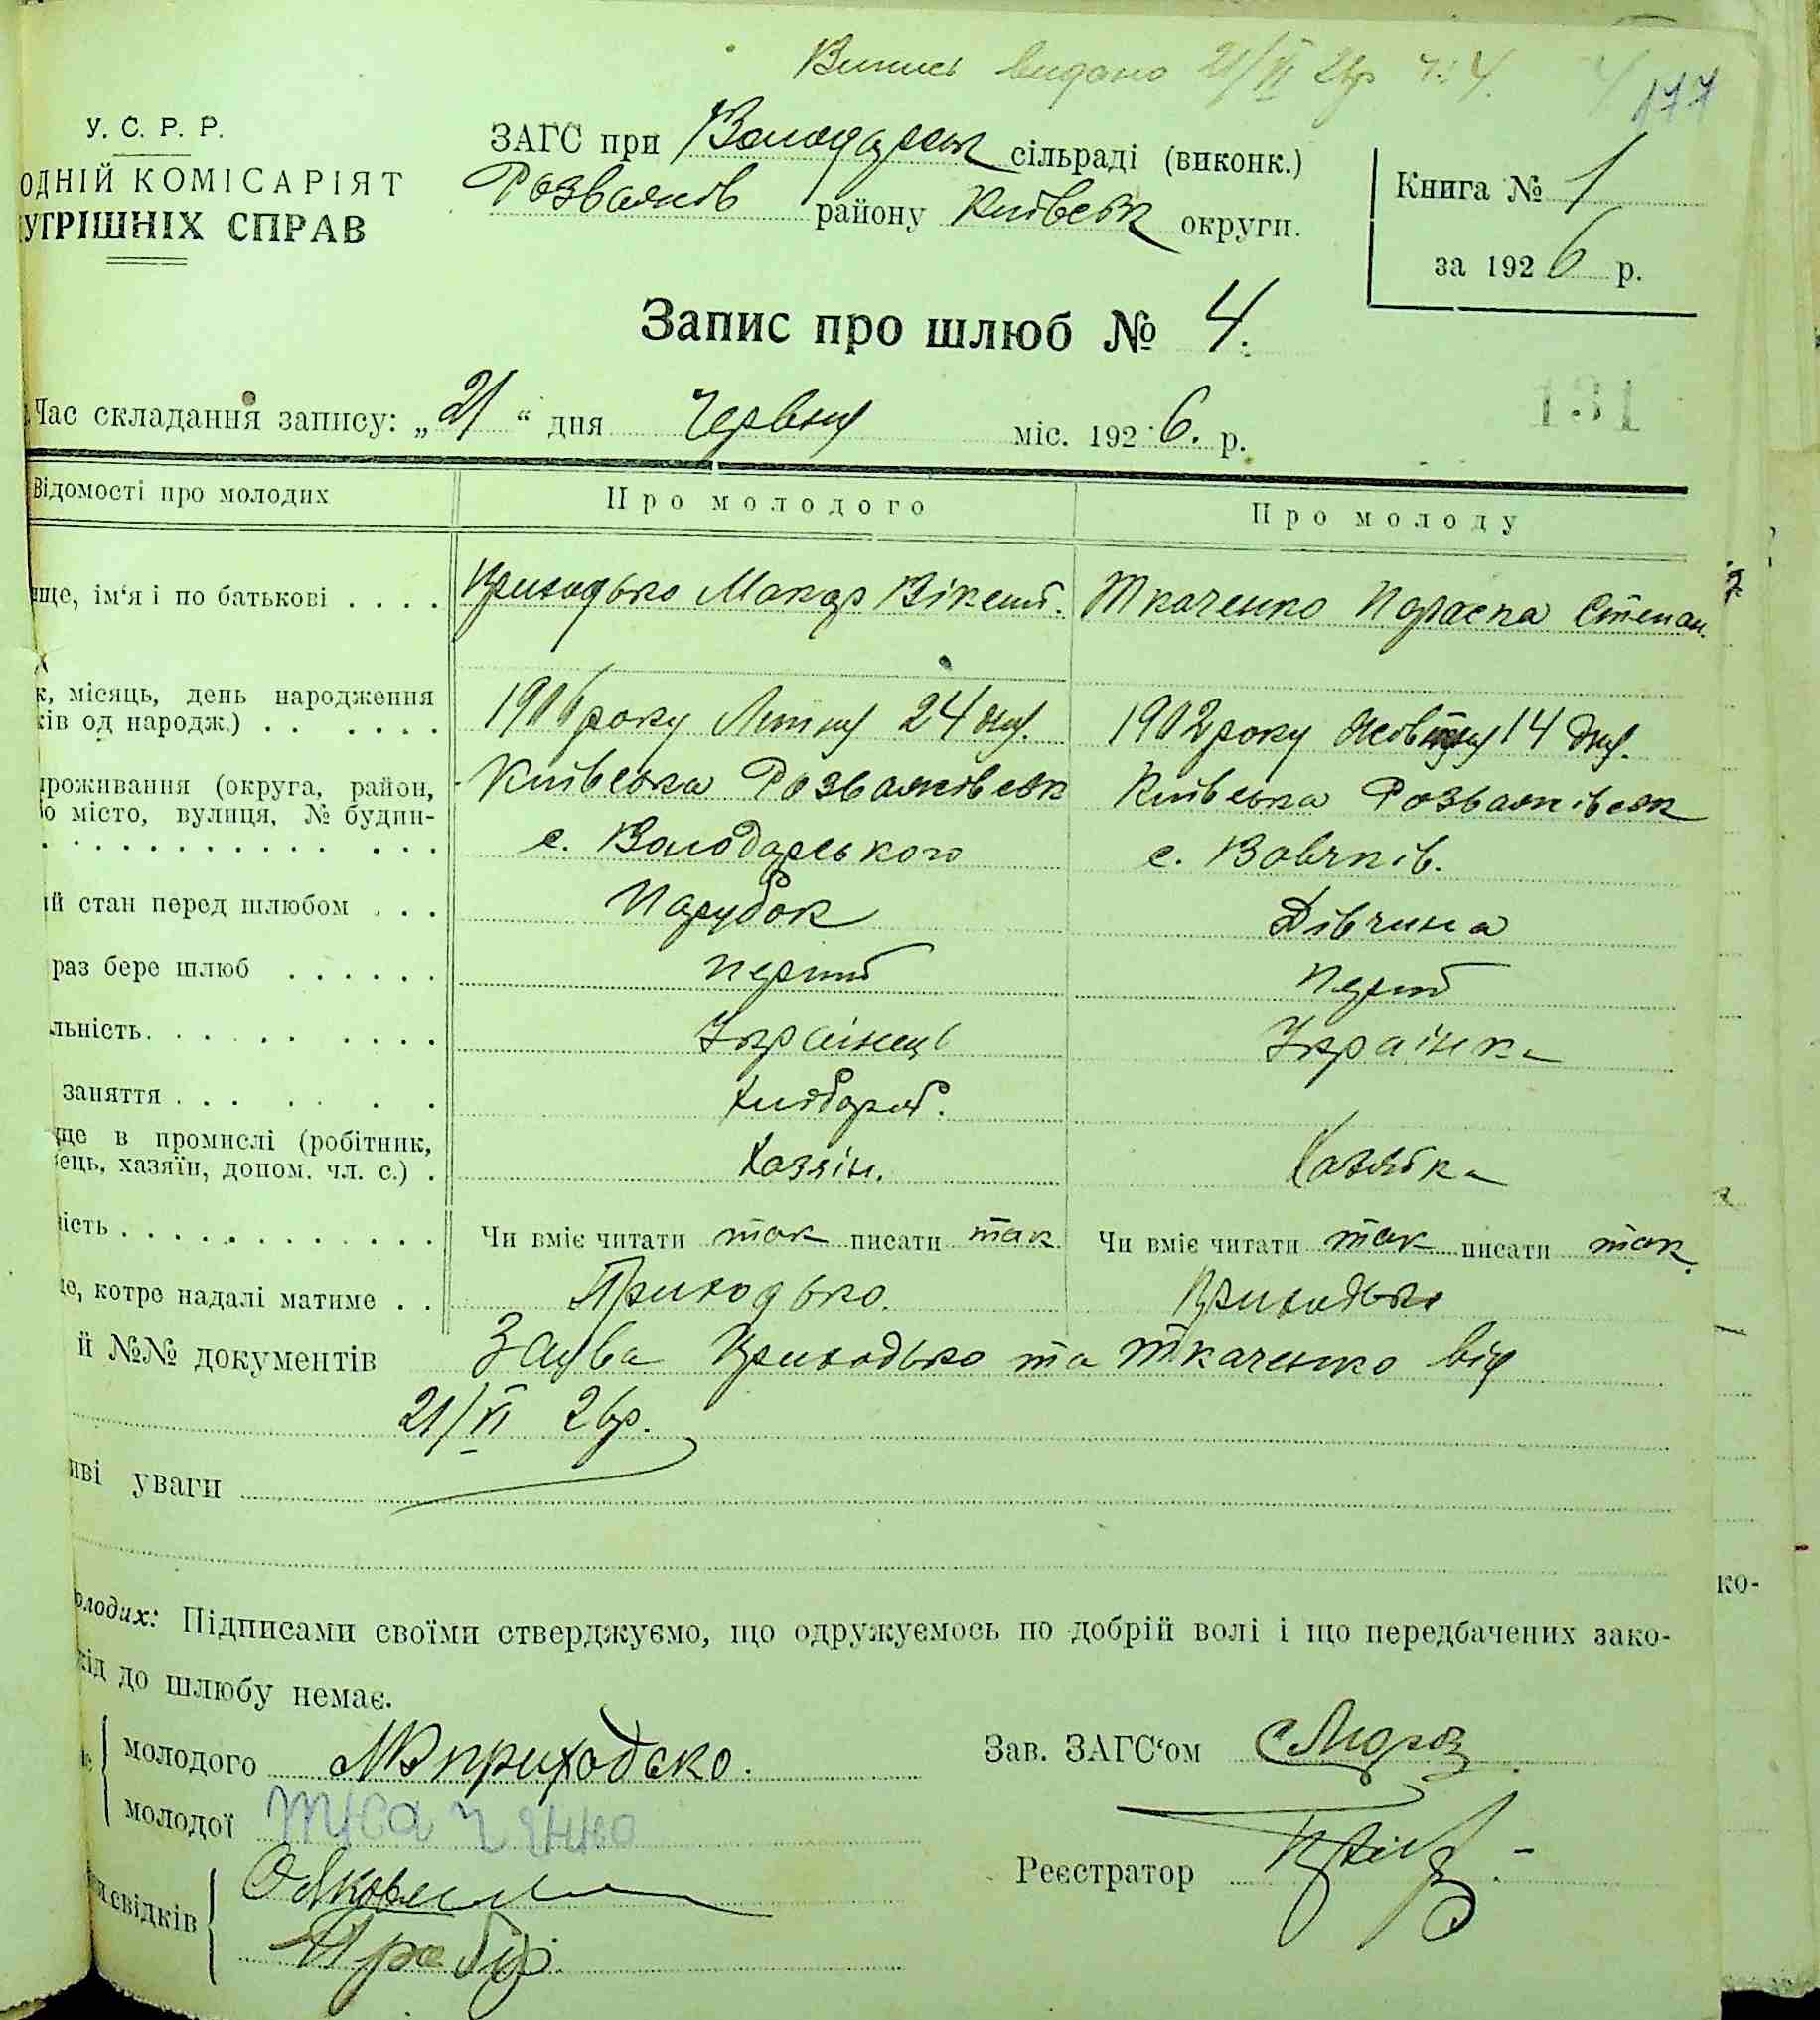 Випис видано 21/VI 26р ч. 4.
177
У. С. Р. Р.
ОДНІЙ КОМІСАРІЯТ
УТРІШНІХ СПРАВ
ЗАГС при Володарськ сільраді (виконк.)
Розважів району Київськ округи.
Книга № 1
за 1926 р.
Запис про шлюб № 4.
131
Час складання запису: „21“ дня Червня міс. 1926. р.
Відомості про молодих Про молодого Про молоду
ище, ім‘я і по батькові . . . . Приходько Макар Вікент. Ткаченко Параска Степан.
к, місяць, день народження
ків од народж.) . . . . . . 1906 року Лютня 24 дня. 1902 року Жовтня 14 дня.
проживання (округа, район, Київська Розважівськ Київська Розважівськ
бо місто, вулиця, № будин- с. Володарського с. Вовчків.
ий стан перед шлюбом . . . Парубок Дівчина
раз бере шлюб . . . . . . перший Перший
льність. . . . . . . . . Українець Українка
заняття . . . . . . . Хлібороб.
ще в промислі (робітник,
ець, хазяїн, допом. чл. с.) . Хазяїн. Хазяйка
ність . . . . . . . . . . . . . Чи вміє читати так писати так Чи вміє читати так писати так.
е, котре надалі матиме . . Приходько. Приходько
й №№ документів Заява Приходько та Ткаченко від
21/VI 26р.
иві уваги
олодих: Підписами своїми стверджуємо, що одружуємось по добрій волі і що передбачених зако-
хід до шлюбу немає.
молодого МВприходько. Зав. ЗАГС‘ом
молодої Ткаченко
Реєстратор
свідків
ко-